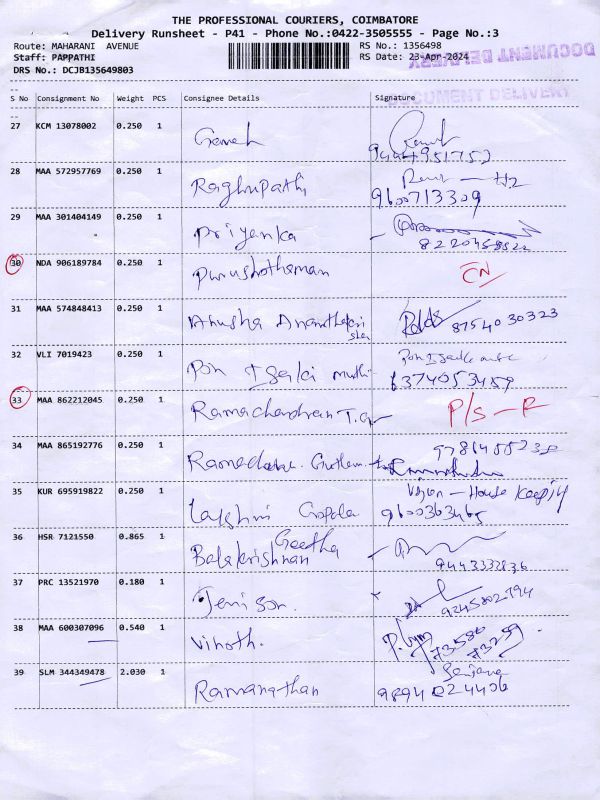 THE PROFESSIONAL COURIERS, COIMBATORE
Delivery Runsheet - P41 - Phone No.:0422-3505555 - Page No.:3
Route: MAHARANI AVENUE RS No.: 1356498
Staff: PAPPATHI RS Date: 23-Apr-2024
DRS No.: DCJB135649803
DOCUMENT DELIVERY
DOCUMENT DELIVERY
S No Consignment No Weight PCS Consignee Details Signature
27 KCM 13078002 0.250 1 Ganesh
28 MAA 572957769 0.250 1 Raghupathi
9600713309
29 MAA 301404149 0.250 1 Priyanka
30 NDA 906189784 0.250 1 Purushothaman CN
31 MAA 574848413 0.250 1 Anusha 8754030323
32 VLI 7019423 0.250 1 Pon Esakki muthu
6374053459
33 MAA 862212045 0.250 1 Ramachandran T.G P/S - R
34 MAA 865192776 0.250 1
35 KUR 695919822 0.250 1 Lakshmi Gopala House Keeping
9600363465
36 HSR 7121550 0.865 1 Geetha
Balakrishnan
9443332836
37 PRC 13521970 0.180 1 Jenison.
9245802794
38 MAA 600307096 0.540 1 Vinoth.
39 SLM 344349478 2.030 1 Ramanathan
9894024406